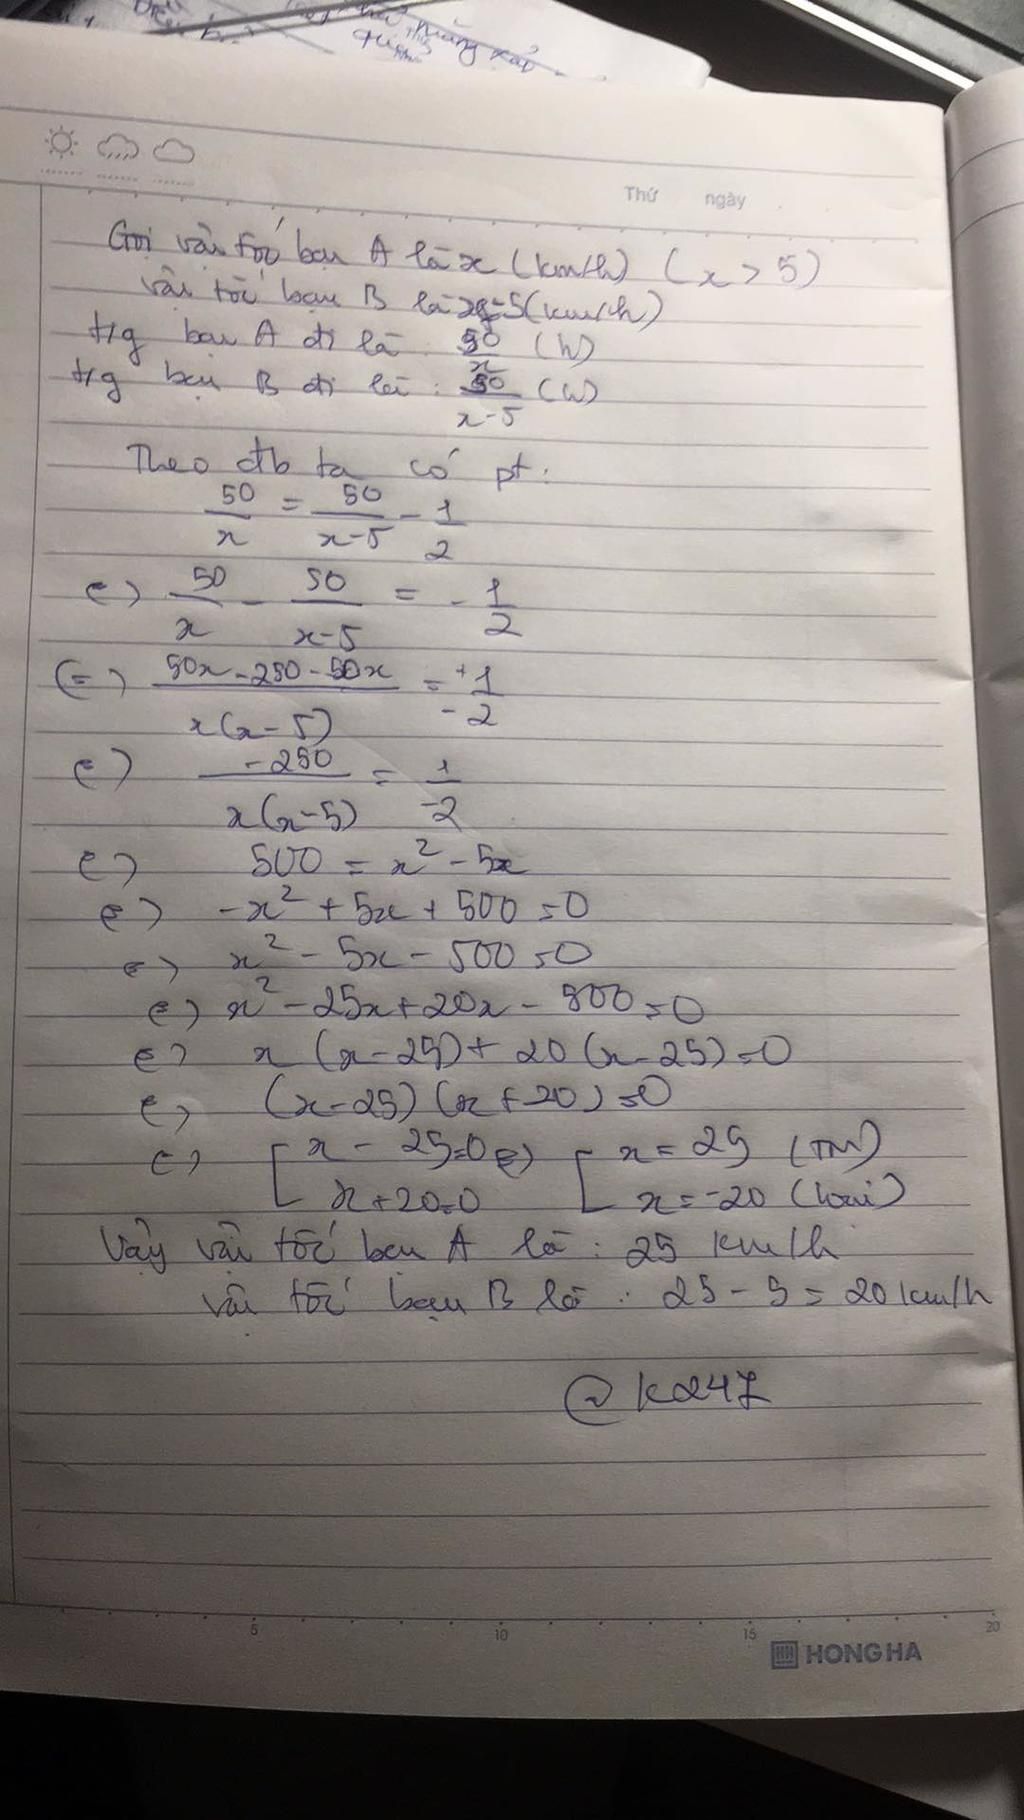 Thứ ngày
Gọi vận tốc bạn A là x (km/h) (x > 5)
vận tốc bạn B là x-5 (km/h)
t/g bạn A đi là 50/x (h)
t/g bạn B đi là : 50/(x-5) (h)
Theo đb ta có pt :
50/x = 50/(x-5) - 1/2
<=> 50/x - 50/(x-5) = -1/2
<=> (50x - 250 - 50x)/(x(x-5)) = +1/-2
<=> -250/(x(x-5)) = 1/-2
<=> 500 = x² - 5x
<=> -x² + 5x + 500 = 0
<=> x² - 5x - 500 = 0
<=> x² - 25x + 20x - 500 = 0
<=> x (x - 25) + 20 (x - 25) = 0
<=> (x - 25) (x + 20) = 0
<=> [ x - 25 = 0 <=> [ x = 25 (TM)
x + 20 = 0 x = -20 (loại)
Vậy vận tốc bạn A là : 25 km/h
vận tốc bạn B là : 25 - 5 = 20 km/h
@k247
5 10 15 20
HONG HA